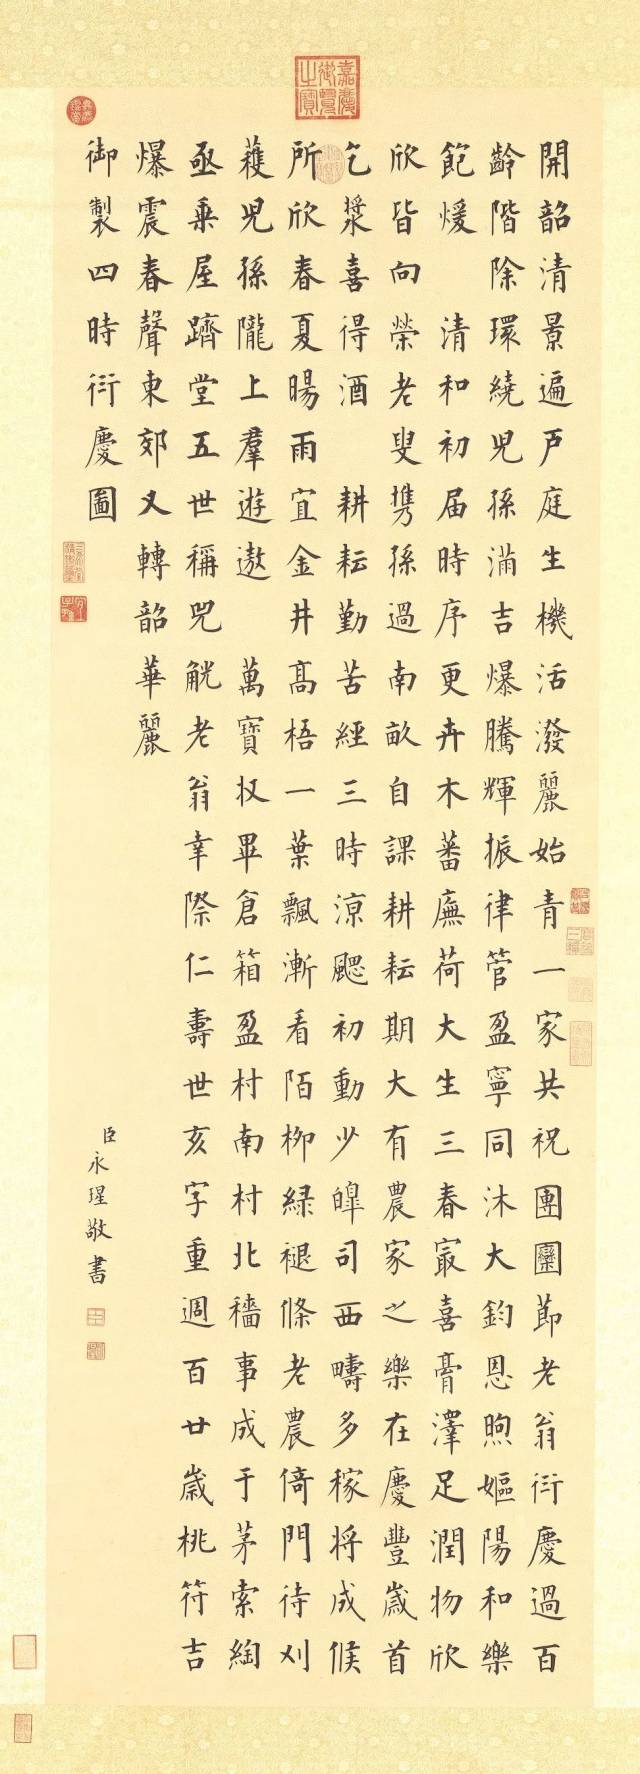 嘉慶御覽之寶
開韶清景遍戶庭生機活潑麗始青一家共祝團圞節老翁衍慶過百
齡階除環繞兒孫滿吉爆騰輝振律管盈寧同沐大鈞恩煦嫗陽和樂
飽煖 清和初届時序更卉木蕃廡荷大生三春冣喜膏澤足潤物欣
欣皆向榮老叟攜孫過南畝自課耕耘期大有農家之樂在慶豐歲首
乞漿喜得酒 耕耘勤苦經三時涼颸初動少皞司西疇多稼將成候
所欣春夏暘雨宜金井高梧一葉飄漸看陌柳綠褪條老農倚門待刈
穫兒孫隴上羣遊遨 萬寶収畢倉箱盈村南村北穡事成于茅索綯
亟乗屋躋堂五世稱兕觥老翁幸際仁壽世亥字重週百廿歲桃符吉
爆震春聲東郊又轉韶華麗
御製四時衍慶圖
臣永瑆敬書